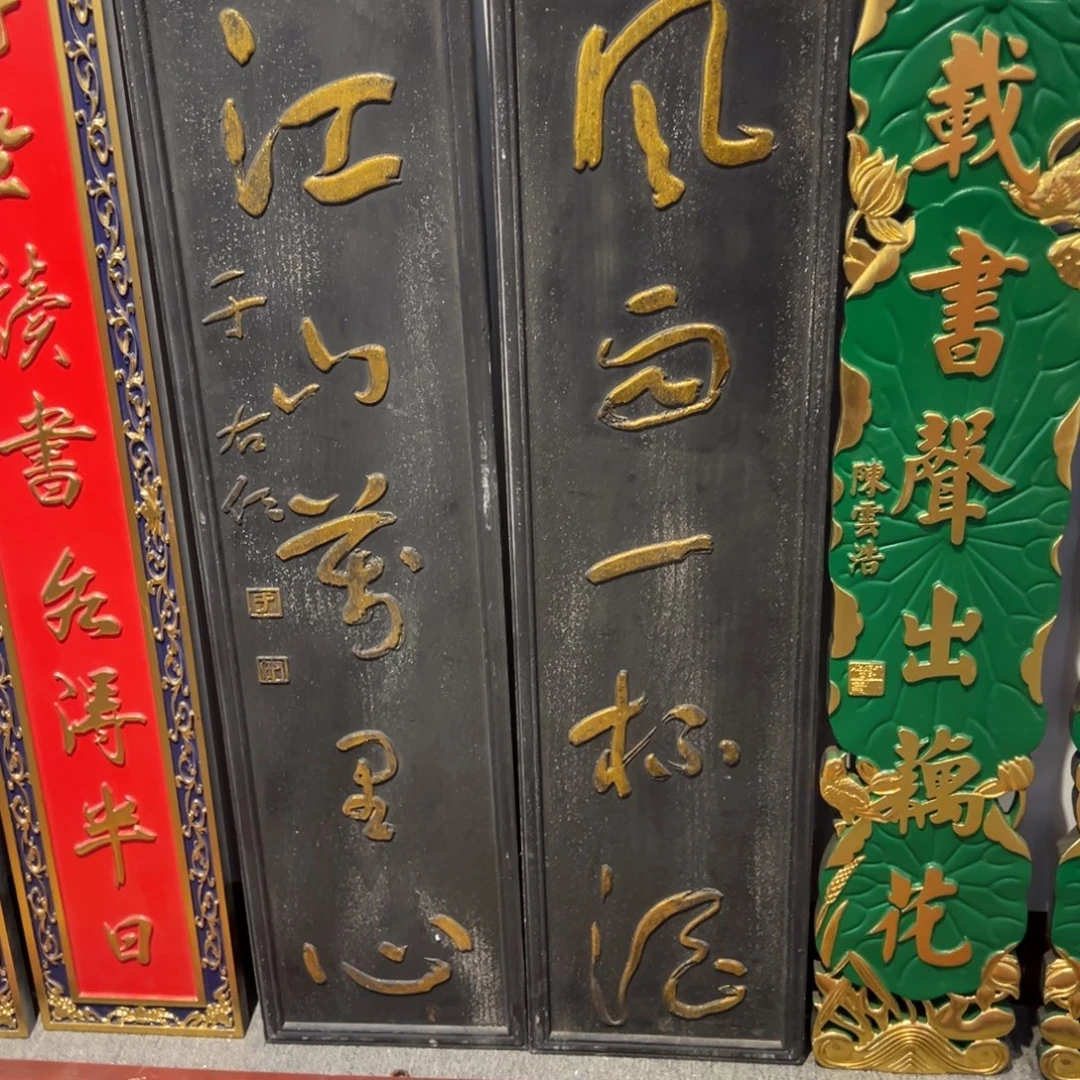 載書聲出藕花
陳雲浩
風雨一杯酒
江山萬里心
于右任
坐讀書各得半日